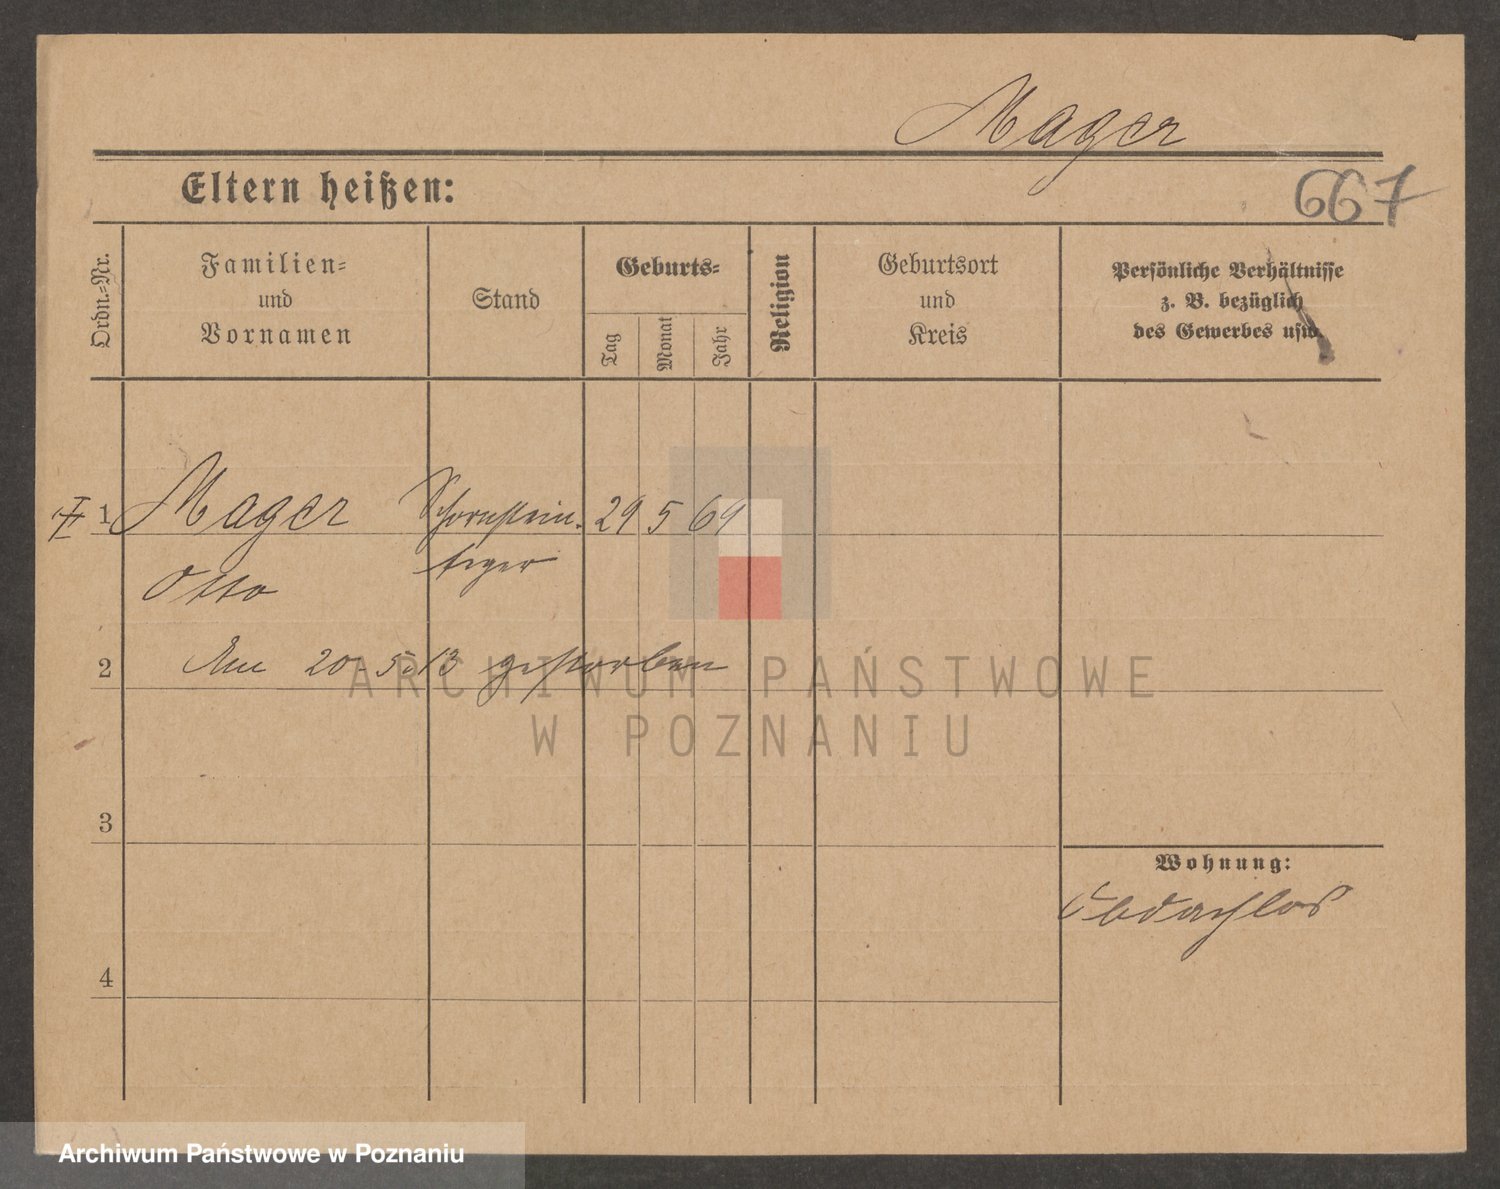 Mager
Eltern heißen:
667
Ordn.-Nr.
Familien-
und
Vornamen
Stand
Geburts-
Tag
Monat
Jahr
Religion
Geburtsort
und
Kreis
Persönliche Verhältnisse
z. B. bezüglich
des Gewerbes usw.
1 Mager Schornstein- 29 5 69
Otto feger
2 Am 20.5.13 gestorben
ARCHIWUM PAŃSTWOWE
W POZNANIU
3
Wohnung:
Obdachlos
4
Archiwum Państwowe w Poznaniu